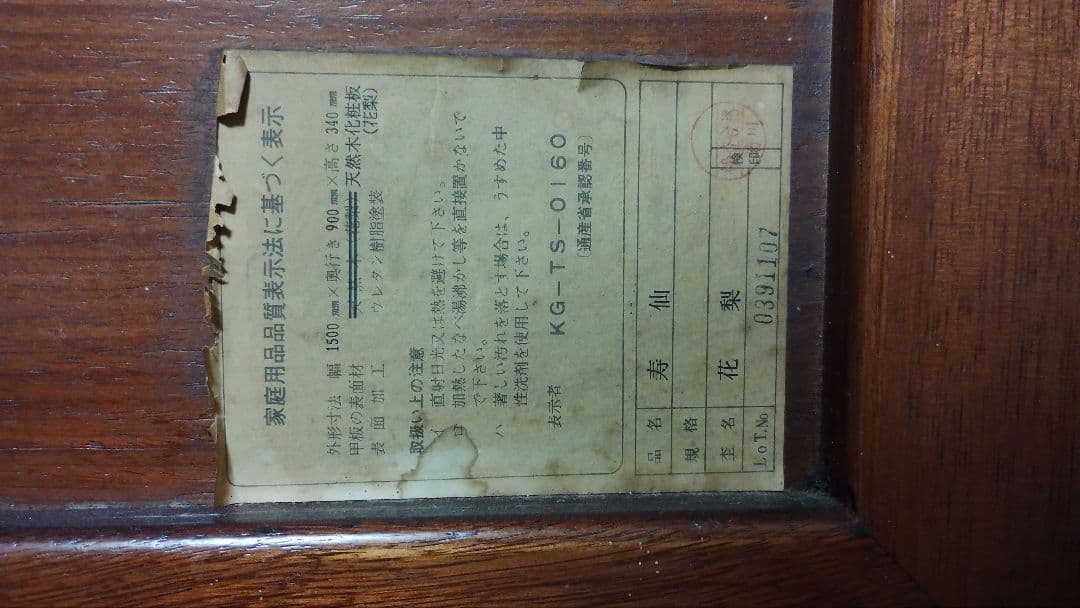 家庭用品品質表示法に基づく表示
外形寸法 幅 1500mm×奥行き 900mm×高さ 340mm
甲板の表面材 天然木化粧板
(花梨)
表面加工 ウレタン樹脂塗装
取扱い上の注意
イ 直射日光又は熱を避けて下さい。
ロ 加熱したなべ湯沸かし等を直接置かないで
で下さい。
ハ 著しい汚れを落とす場合は、うすめた中
性洗剤を使用して下さい。
表示者 KG-TS-0160
(通産省承認番号)
品名 寿仙
規格
杢名 花梨
検印
LoT.No 0391107